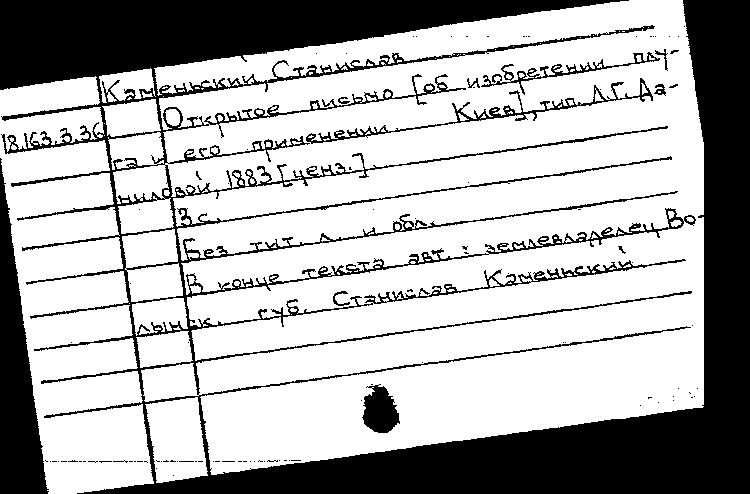 Каменьский, Станислав
18.163.3.36.
Открытое письмо [об изобретении плу-
га и его применении. Киев], тип. Л.Г. Да-
ниловой, 1883 [ценз.].
3 с.
Без тит. л. и обл.
В конце текста авт.: землевладелец Во-
лынск. губ. Станислав Каменьский.